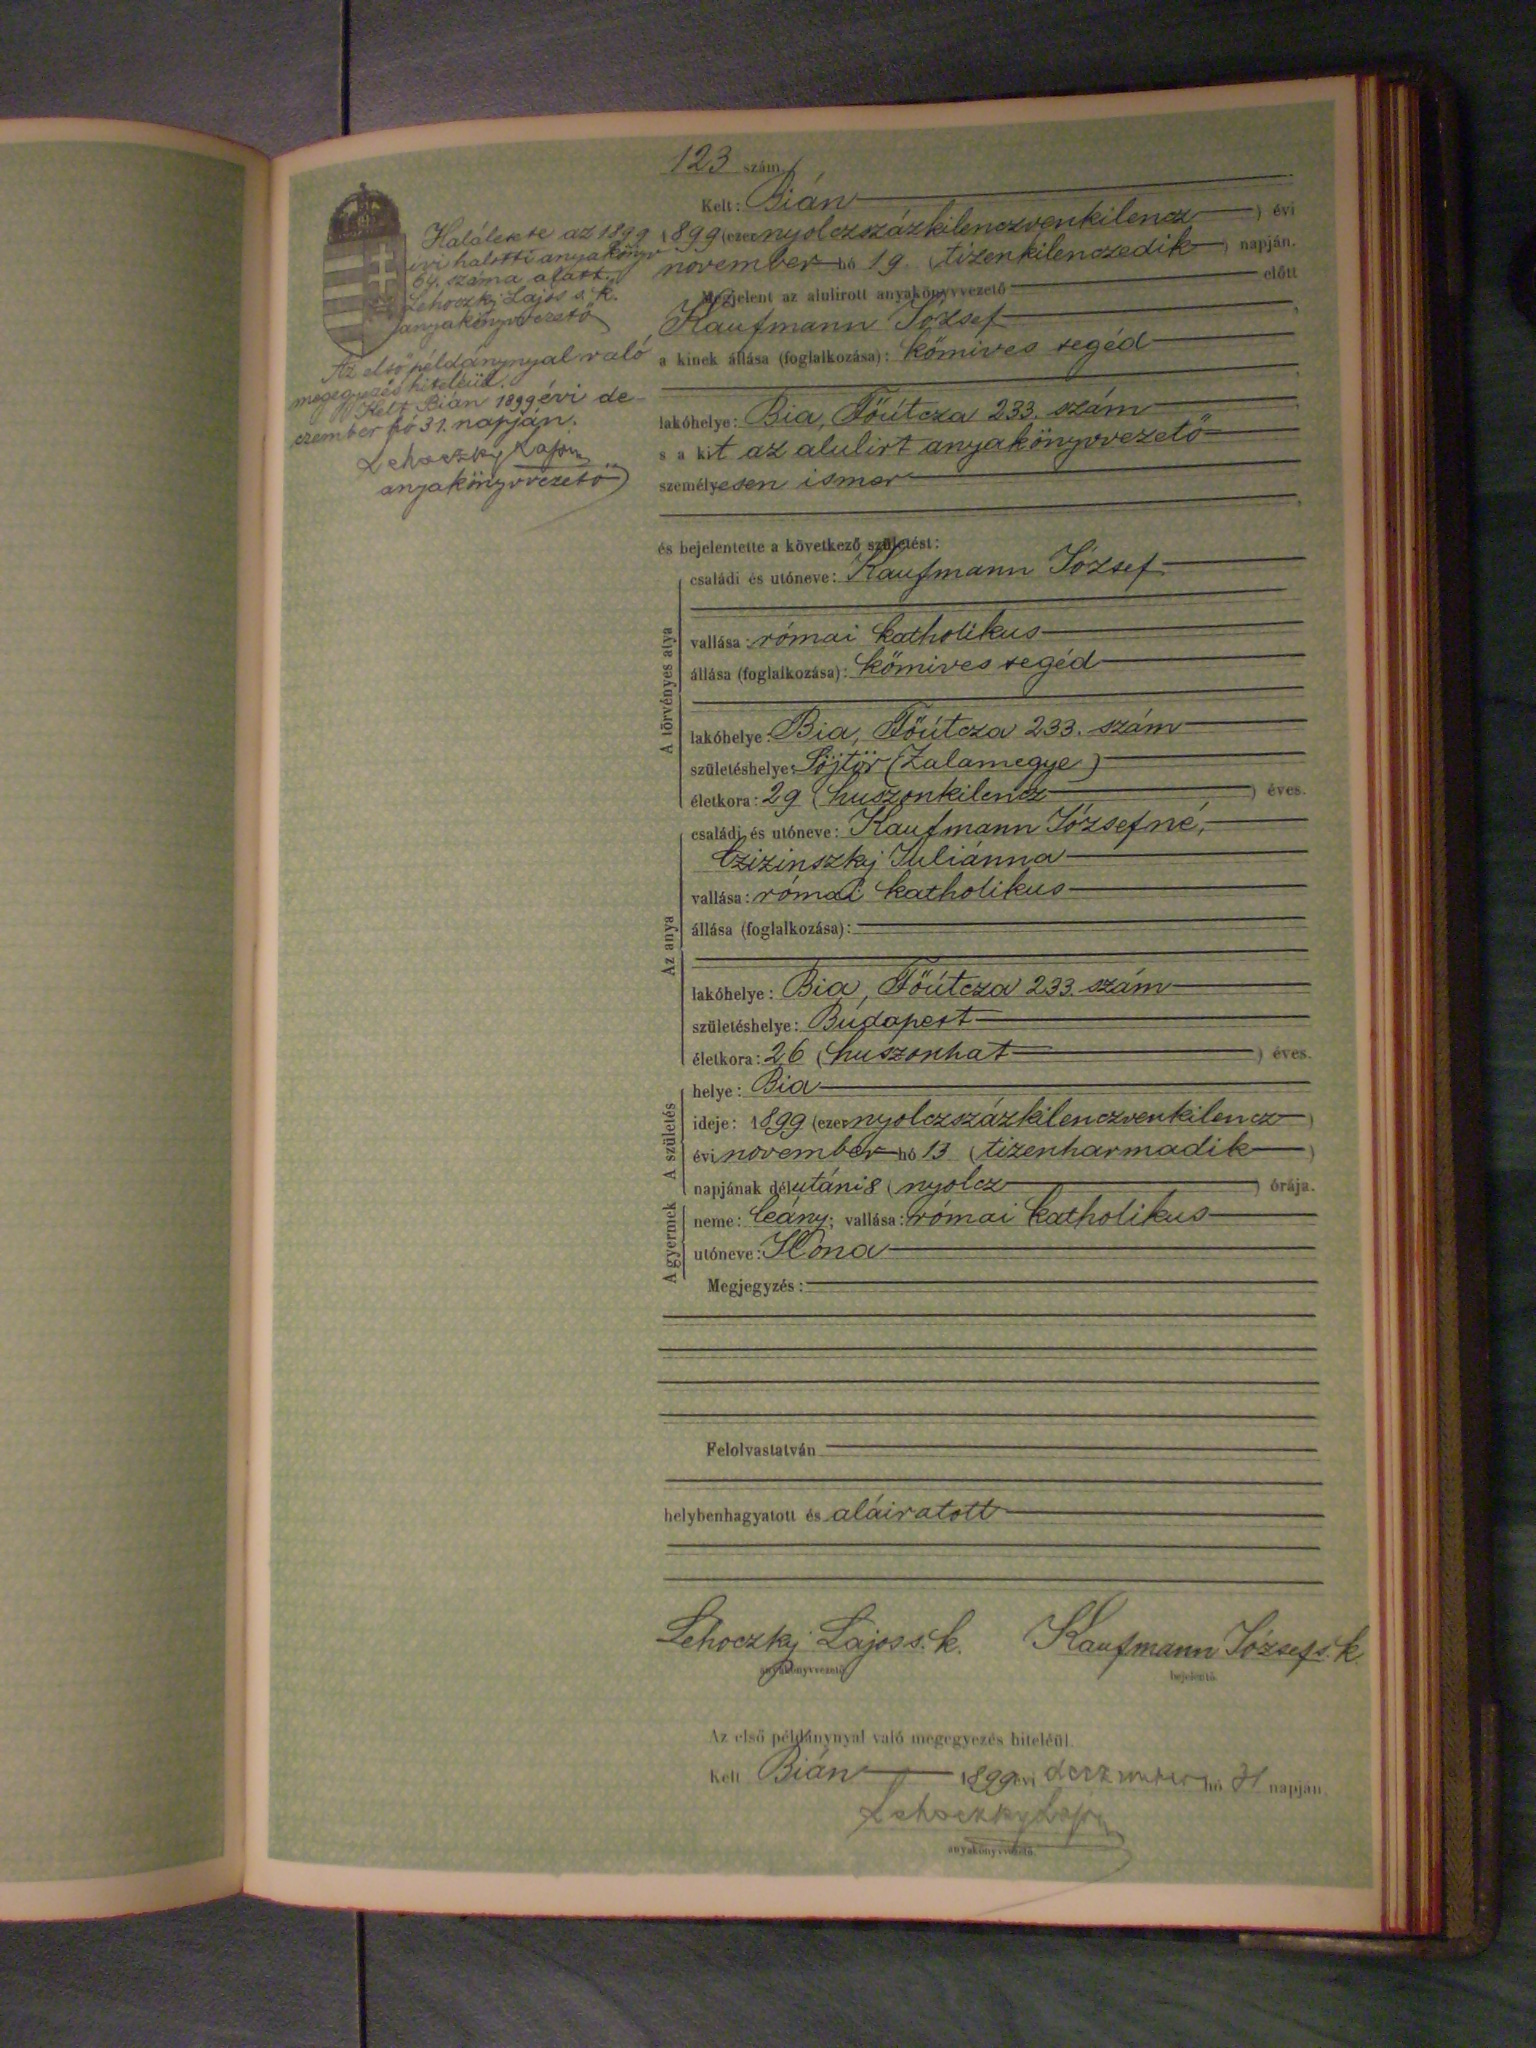 123 szám.
Kelt: Bián
1899 (ezernyolczszázkilenczvenkilencz) évi
november hó 19. (tizenkilenczedik) napján.
Megjelent az alulirott anyakönyvvezető előtt
Kaufmann József
a kinek állása (foglalkozása): kőmives segéd
lakóhelye: Bia, Főútcza 233. szám
s a kit az alulirt anyakönyvvezető
személyesen ismer
és bejelentette a következő születést:
A törvényes atya
családi és utóneve: Kaufmann József
vallása: római katholikus
állása (foglalkozása): kőmives segéd
lakóhelye: Bia, Főútcza 233. szám
születéshelye: Söjtör (Zalamegye)
életkora: 29 (huszonkilencz) éves.
Az anya
családi és utóneve: Kaufmann Józsefné,
Czizinszky Juliánna
vallása: római katholikus
állása (foglalkozása):
lakóhelye: Bia, Főútcza 233. szám
születéshelye: Búdapest
életkora: 26 (huszonhat) éves.
A születés
helye: Bia
ideje: 1899 (ezernyolczszázkilenczvenkilencz)
évi november hó 13 (tizenharmadik)
napjának délutáni 8 (nyolcz) órája.
A gyermek
neme: leány; vallása: római katholikus
utóneve: Ilona
Megjegyzés:
Felolvastatván
helybenhagyatott és aláiratott
Lehoczky Lajos s. k. Kaufmann József s. k.
anyakönyvvezető bejelentő.
Az első példánynyal való megegyezés hiteléül.
Kelt Bián 1899 évi deczember hó 31 napján.
Lehoczky Lajos
anyakönyvvezető.
Halálesete az 1899
évi halotti anyakönyv
69. száma alatt.
Lehoczky Lajos s. k.
anyakönyvvezető
Az első példánynyal való
megegyezés hiteléül.
Kelt Bián 1899 évi de-
czember hó 31. napján.
Lehoczky Lajos
anyakönyvvezető